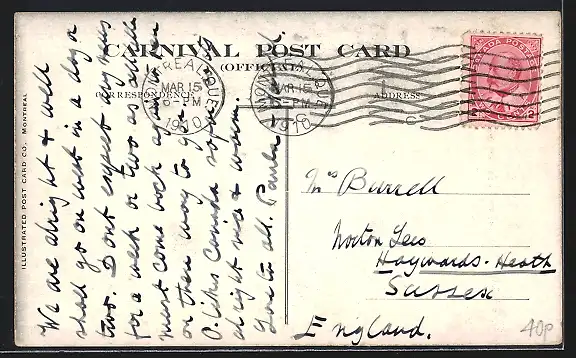 CARNIVAL POST CARD
(OFFICIAL)
CORRESPONDENCE
ADDRESS
MONTREAL, QUE.
MAR 15
6-PM
1910
MONTREAL, QUE.
MAR 15
6-PM
1910
CANADA POSTAGE
2
ILLUSTRATED POST CARD CO., MONTREAL
We are alright & well
shall go on west in a day or
two. Dont expect any news
for a week or two as
must come back again
on then way to
C. likes Canada
alright nice & warm.
Love to all.
Mrs Burrell
Norton Lees
Haywards-Heath
Sussex
England.
40p